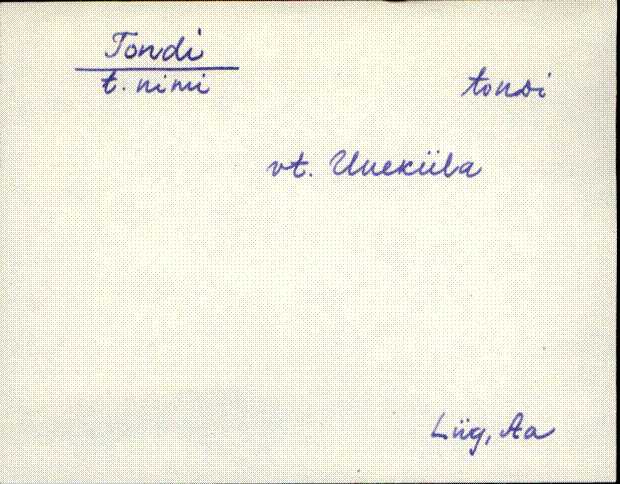 Tondi
t. nimi
tondi
vt. Uueküla
Lüg, Aa